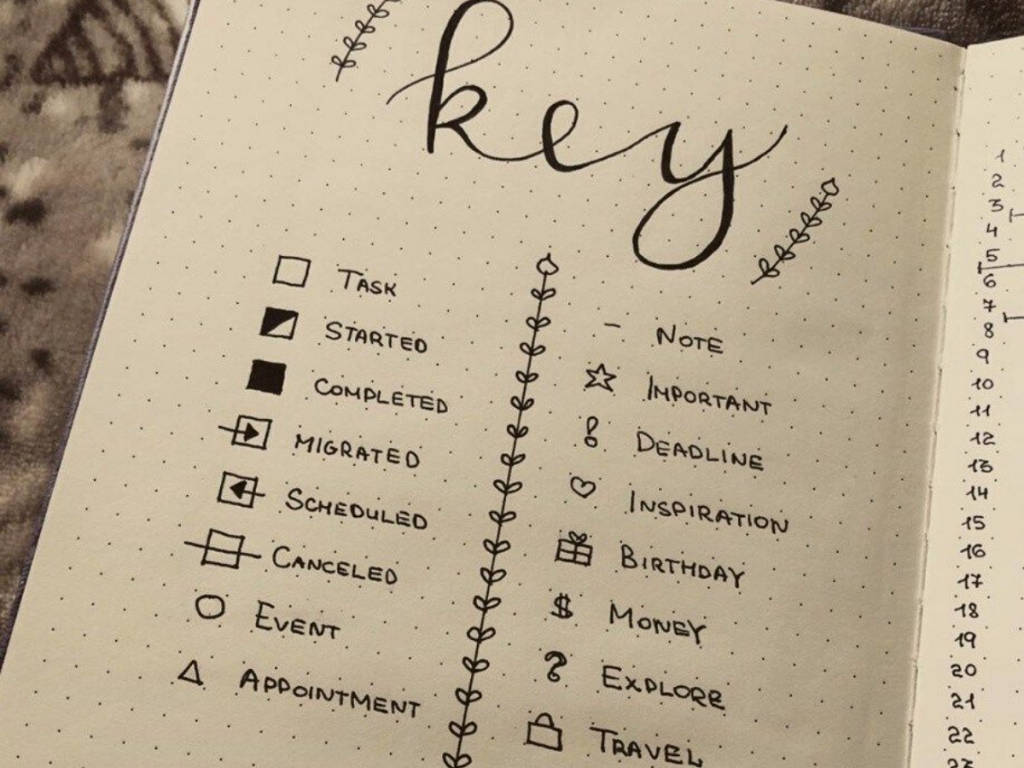 key
TASK
STARTED
COMPLETED
MIGRATED
SCHEDULED
CANCELED
EVENT
APPOINTMENT
– NOTE
IMPORTANT
! DEADLINE
INSPIRATION
BIRTHDAY
$ MONEY
? EXPLORE
TRAVEL
1
2
3
4
5
6
7
8
9
10
11
12
13
14
15
16
17
18
19
20
21
22
23